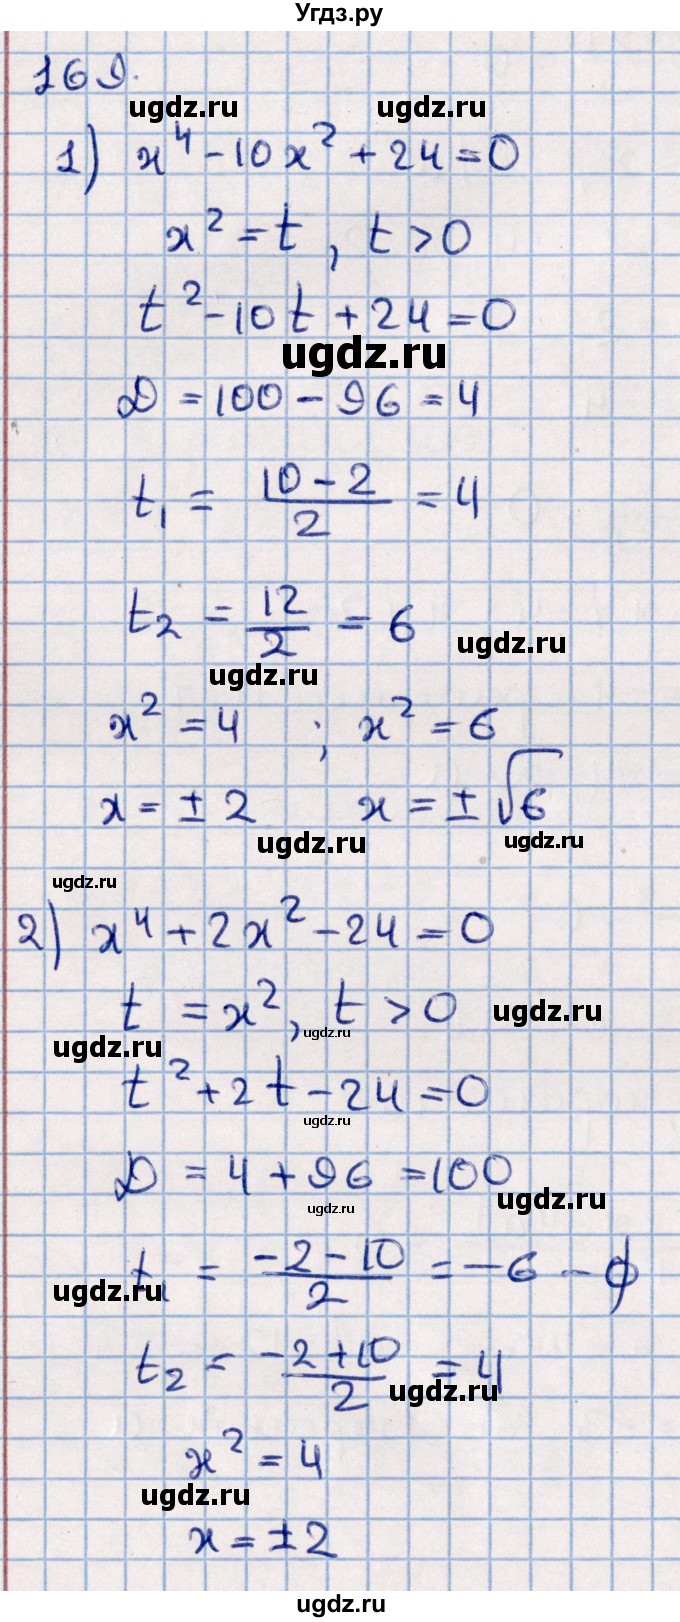 Угдз.ру
169.
ugdz.ru ugdz.ru
1) x⁴ - 10x² + 24 = 0
x² = t, t > 0
t² - 10t + 24 = 0
ugdz.ru
D = 100 - 96 = 4
t₁ = (10 - 2)/2 = 4
t₂ = 12/2 = 6
ugdz.ru
ugdz.ru
x² = 4 ; x² = 6
x = ± 2 x = ± √6
ugdz.ru ugdz.ru
ugdz.ru
2) x⁴ + 2x² - 24 = 0
t = x², t > 0
ugdz.ru
ugdz.ru
ugdz.ru
t² + 2t - 24 = 0
ugdz.ru
D = 4 + 96 = 100
ugdz.ru
ugdz.ru
t₁ = (-2 - 10)/2 = -6 - ф
ugdz.ru
t₂ = (-2 + 10)/2 = 4
ugdz.ru
x² = 4
ugdz.ru
x = ±2
ugdz.ru